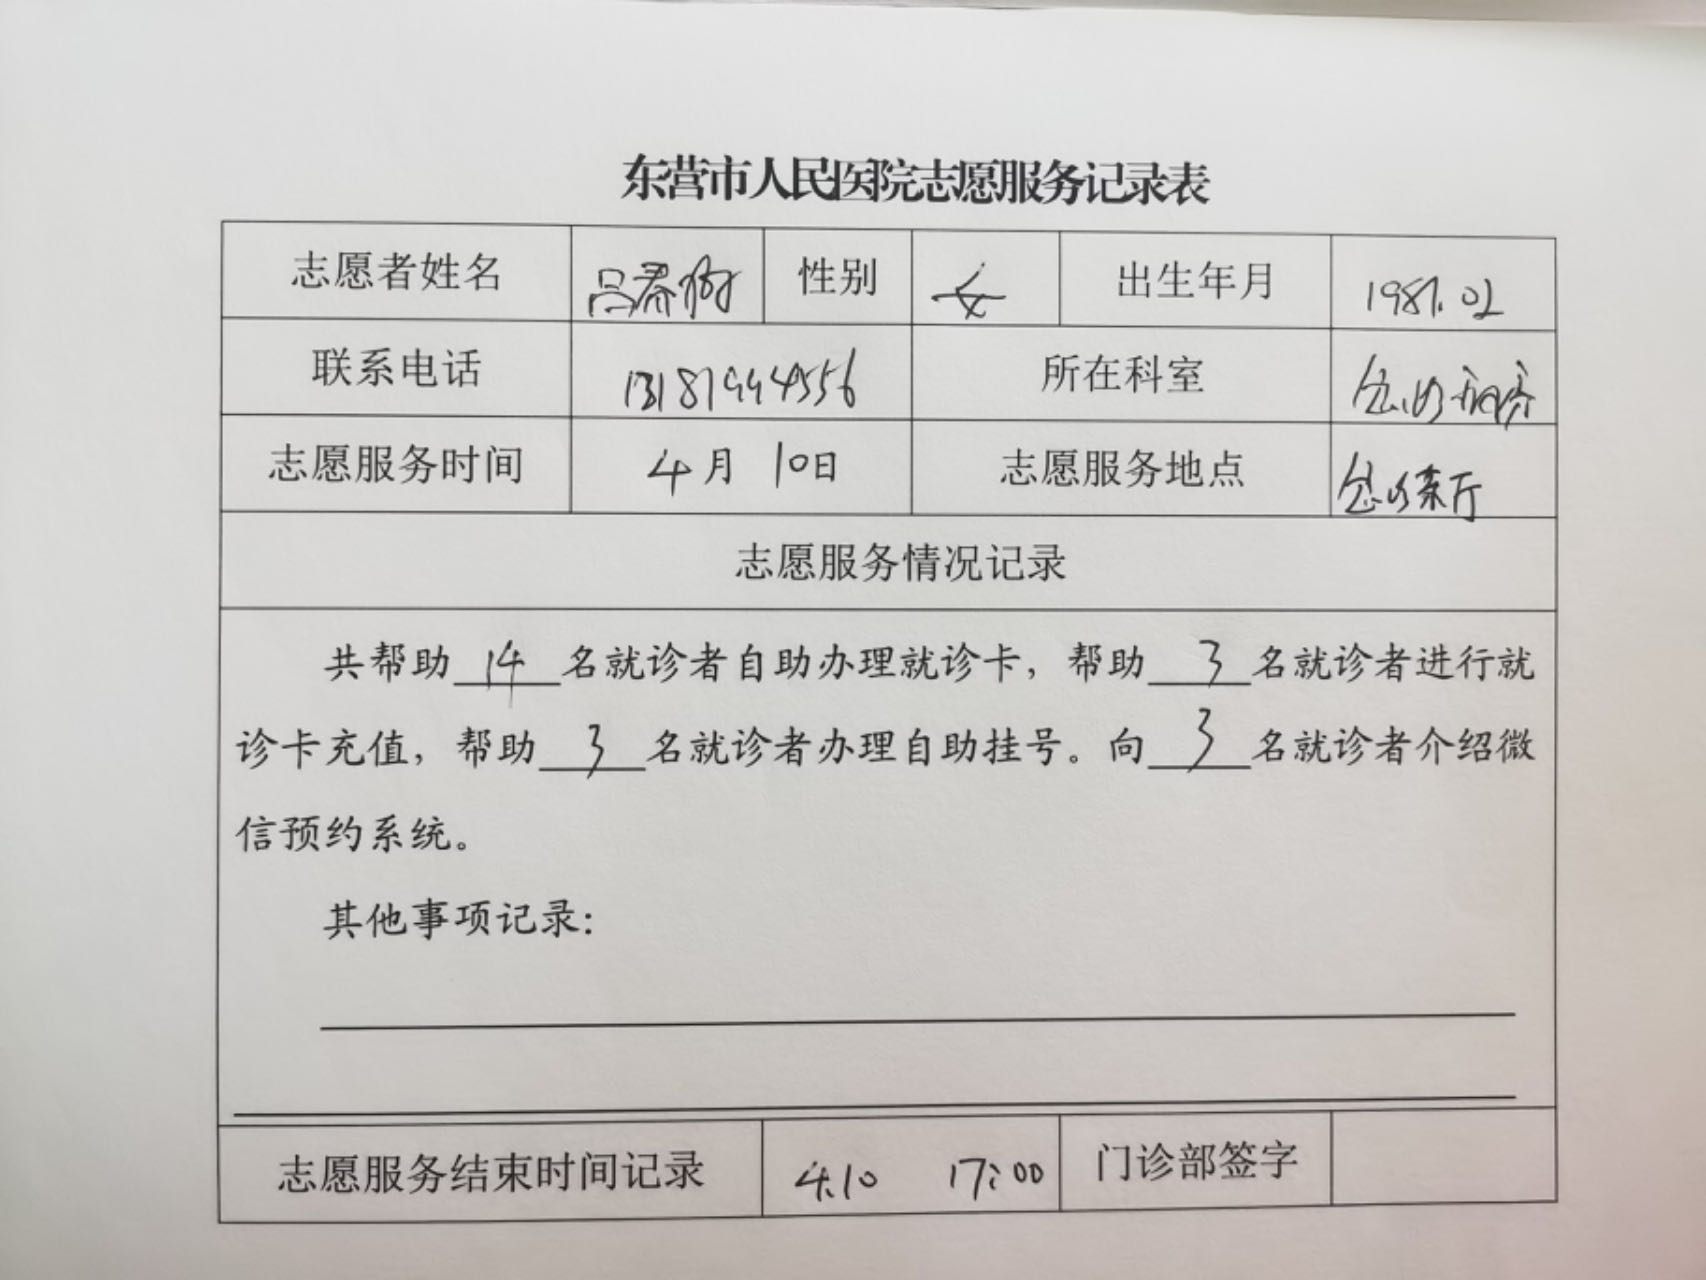 东营市人民医院志愿服务记录表
志愿者姓名 吕春 性别 女 出生年月 1987.02
联系电话 13187994556 所在科室 急诊
志愿服务时间 4月 10日 志愿服务地点 急诊 厅
志愿服务情况记录
共帮助 14 名就诊者自助办理就诊卡，帮助 3 名就诊者进行就
诊卡充值，帮助 3 名就诊者办理自助挂号。向 3 名就诊者介绍微
信预约系统。
其他事项记录：
志愿服务结束时间记录 4.10 17:00 门诊部签字